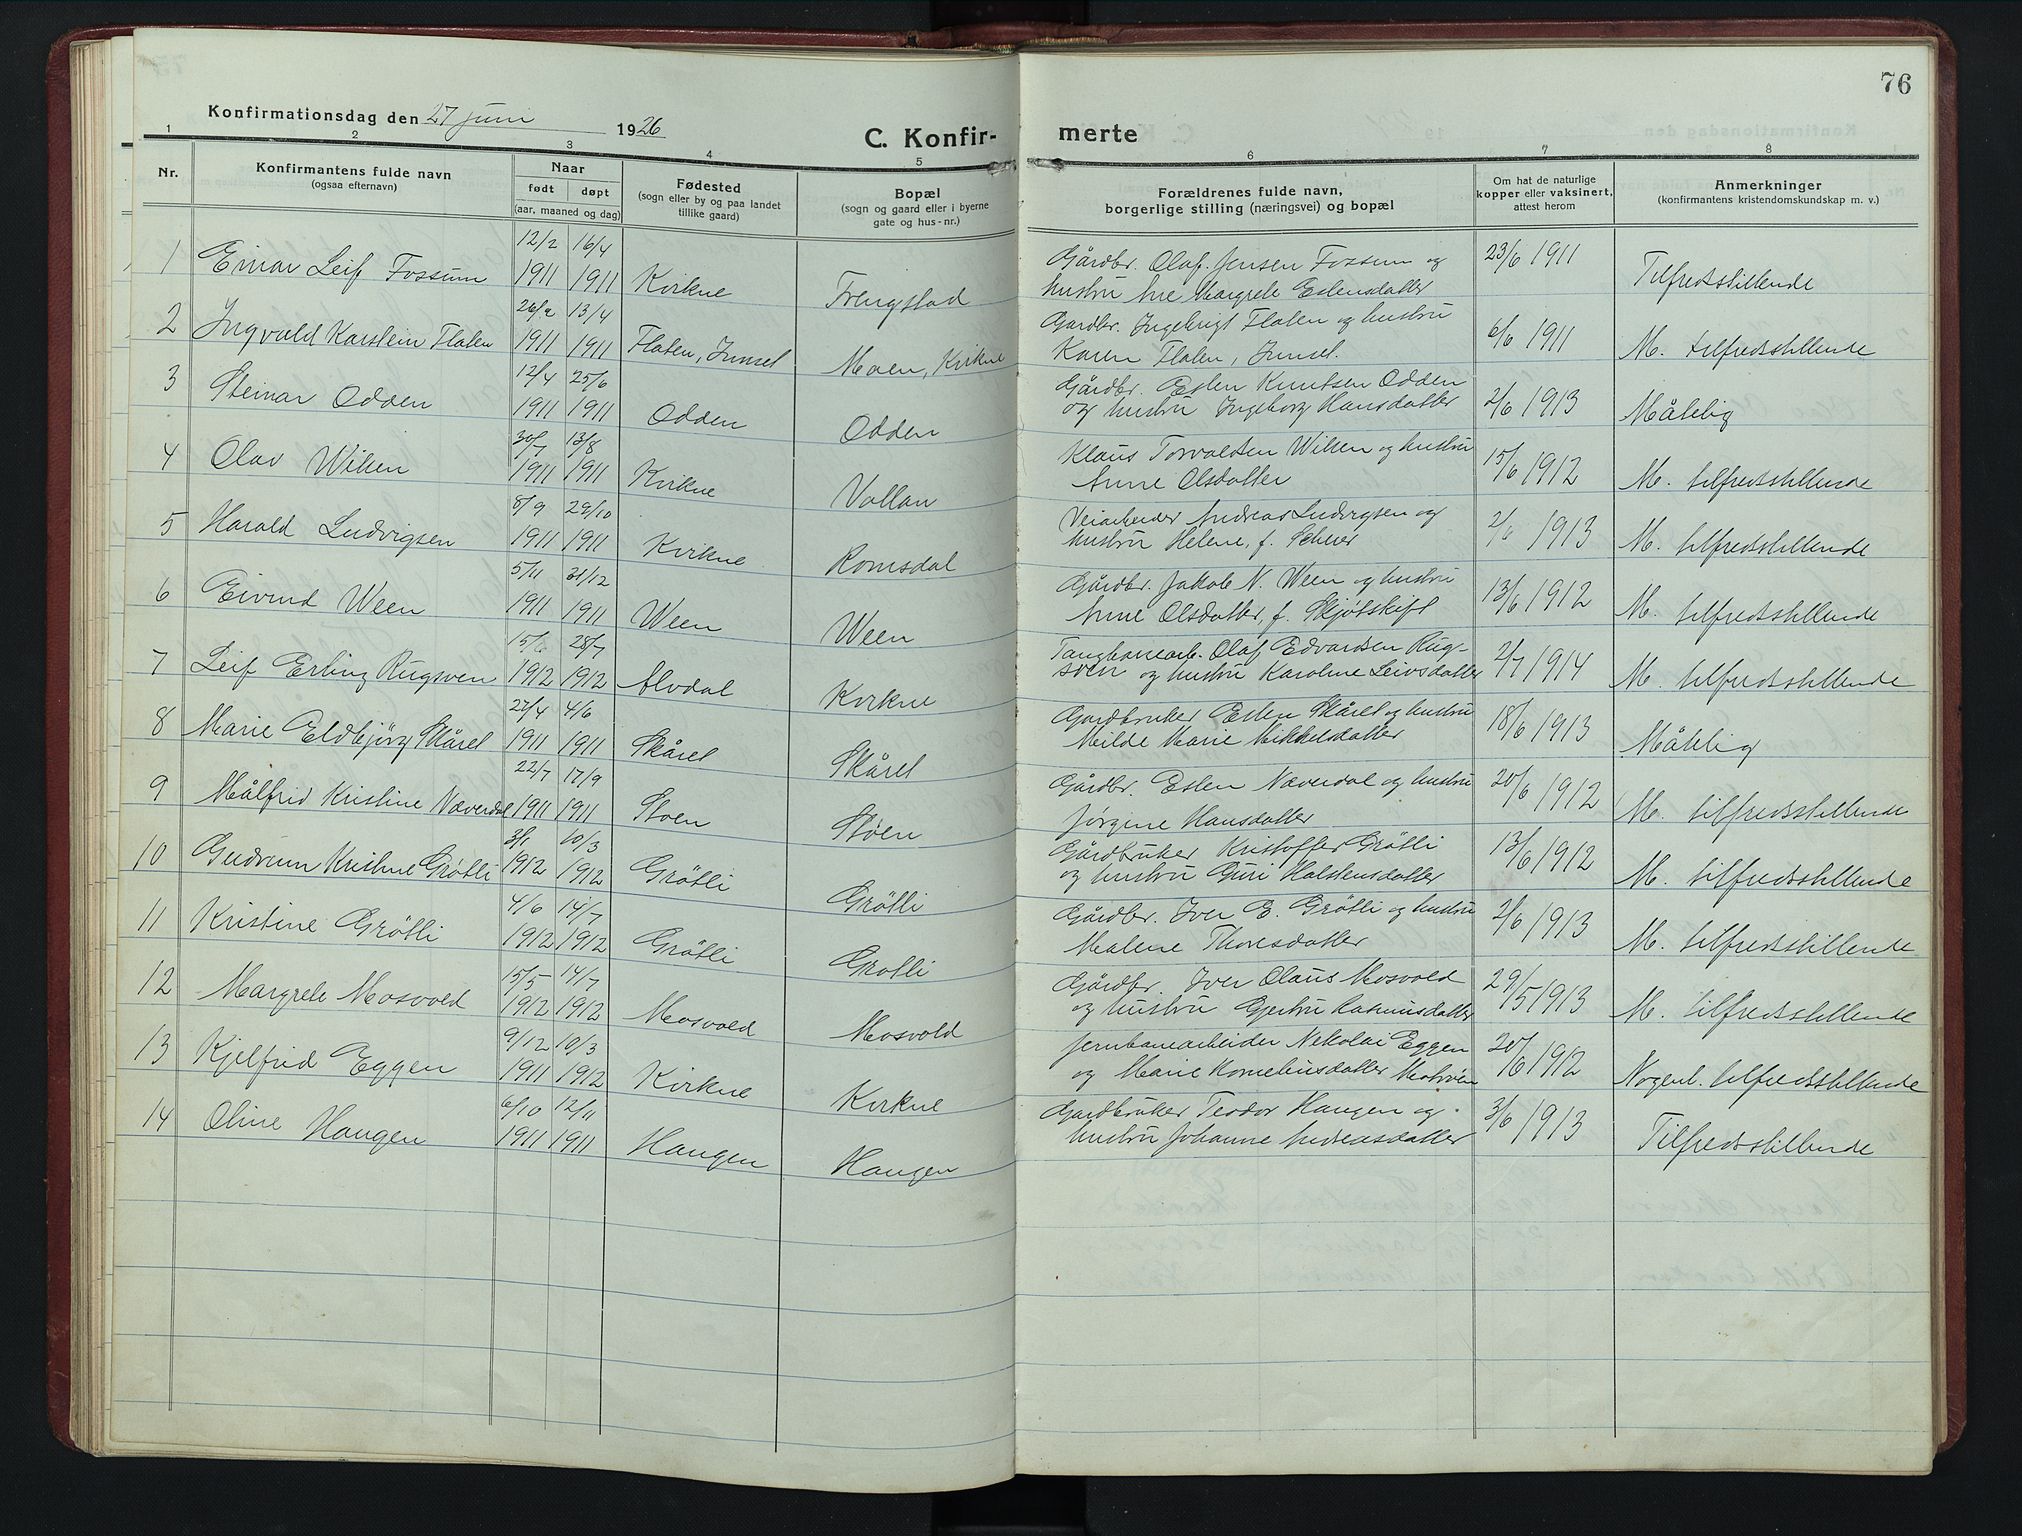 76
Konfirmationsdag den 27 juni 1926
C. Konfir- merte
1 2 3 4 5 6 7 8
Nr.
Konfirmantens fulde navn
(ogsaa efternavn)
Naar
født døpt
(aar, maaned og dag)
Fødested
(sogn eller by og paa landet
tillike gaard)
Bopæl
(sogn og gaard eller i byerne
gate og hus-nr.)
Forældrenes fulde navn,
borgerlige stilling (næringsvei) og bopæl
Om hat de naturlige
kopper eller vaksinert,
attest herom
Anmerkninger
(konfirmantens kristendomskundskap m. v.)
1 Einar Leif Fossum 12/2 1911 16/4 1911 Kvikne Frengstad Gårdbr. Olaf Jensen Fossum og
hustru Ane Margrete Estensdatter 23/6 1911 Tilfredsstillende
2 Ingvald Karstein Flaten 26/2 1911 13/4 1911 Flaten, Innset Moen, Kvikne Gardbr. Ingebrigt Flaten og hustru
Karen Flaten, Innset. 6/6 1911 M. tilfredsstillende
3 Steinar Odden 12/4 1911 25/6 1911 Odden Odden Gårdbr. Esten Knutsen Odden
og hustru Ingeborg Hansdatter 2/6 1913 Måtelig
4 Olav Wiken 30/7 1911 13/8 1911 Kvikne Vollan Klaus Torvaldsen Wiken og hustru
Anne Olsdatter 15/6 1912 M. tilfredsstillende
5 Harald Ludvigsen 8/9 1911 29/10 1911 Kvikne Romsdal Veiarbeider Andreas Ludvigsen og
hustru Helene, f. 2/6 1913 M. tilfredsstillende
6 Eivind Ween 5/11 1911 31/12 1911 Ween Ween Gårdbr. Jakob N. Ween og hustru
Anne Olsdatter, f. Skjøtskift 13/6 1912 M. tilfredsstillende
7 Leif Erling Rugsven 15/6 1912 28/7 1912 Alvdal Kvikne Taugbanearb. Olaf Edvardsen Rug-
sven og hustru Karoline Leivsdatter 2/7 1914 M. tilfredsstillende
8 Marie Eldbjörg Skåret 27/4 1911 4/6 1911 Skåret Skåret Gardbruker Esten Skåret og hustru
Milde Marie Mikkelsdatter 18/6 1913 Måtelig
9 Målfrid Kristine Næverdal 22/7 1911 17/9 1911 Støen Støen Gårdbr. Esten Næverdal og hustru
Jørgine Hansdatter 20/6 1912 M. tilfredsstillende
10 Gudrun Kristine Grötli 3/1 1912 10/3 1912 Grötli Grötli Gårdbruker Kristoffer Grötli
og hustru Guri Halstensdatter 13/6 1912 M. tilfredsstillende
11 Kristine Grötli 4/6 1912 14/7 1912 Grötli Grotli Gårdbr. Iver E. Grötli og hustru
Malene Thoresdatter 2/6 1913 M. tilfredsstillende
12 Margrete Mosvold 15/5 1912 14/7 1912 Mosvold Mosvold Gårdbr. Iver Olaus Mosvold
og hustru Gjertru Rasmusdatter 29/5 1913 M. tilfredsstillende
13 Kjelfrid Eggen 9/12 1911 10/3 1912 Kvikne Kvikne Jernbanearbeider Nikolai Eggen
og Marie Korneliusdatter 20/6 1912 Nogenl. tilfredsstillende
14 Oline Haugen 6/10 1911 12/11 1911 Haugen Haugen Gardbruker Teodor Haugen og
hustru Johanne Andreasdatter 3/6 1913 Tilfredsstillende